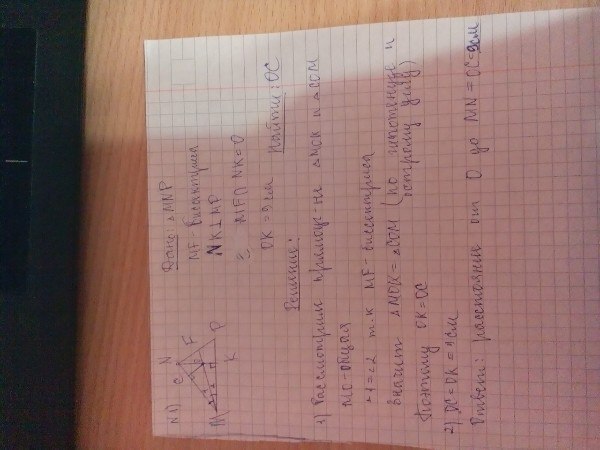 N 1)
N
C
F
M
P
K
Дано: △MNP
MF биссектриса
NK⊥MP
MF∩NK=O
OK = 9 см Найти: OC
Решение:
1) Рассмотрим прямоуг-не △MOK и △COM
MO-общая
∠1=∠2 т.к MF-биссектриса
Значит △MOK=△COM (по гипотенузе и острому углу)
Поэтому OK=OC
2) OC=OK=9см
Ответ: расстояние от O до MN=OC=9см